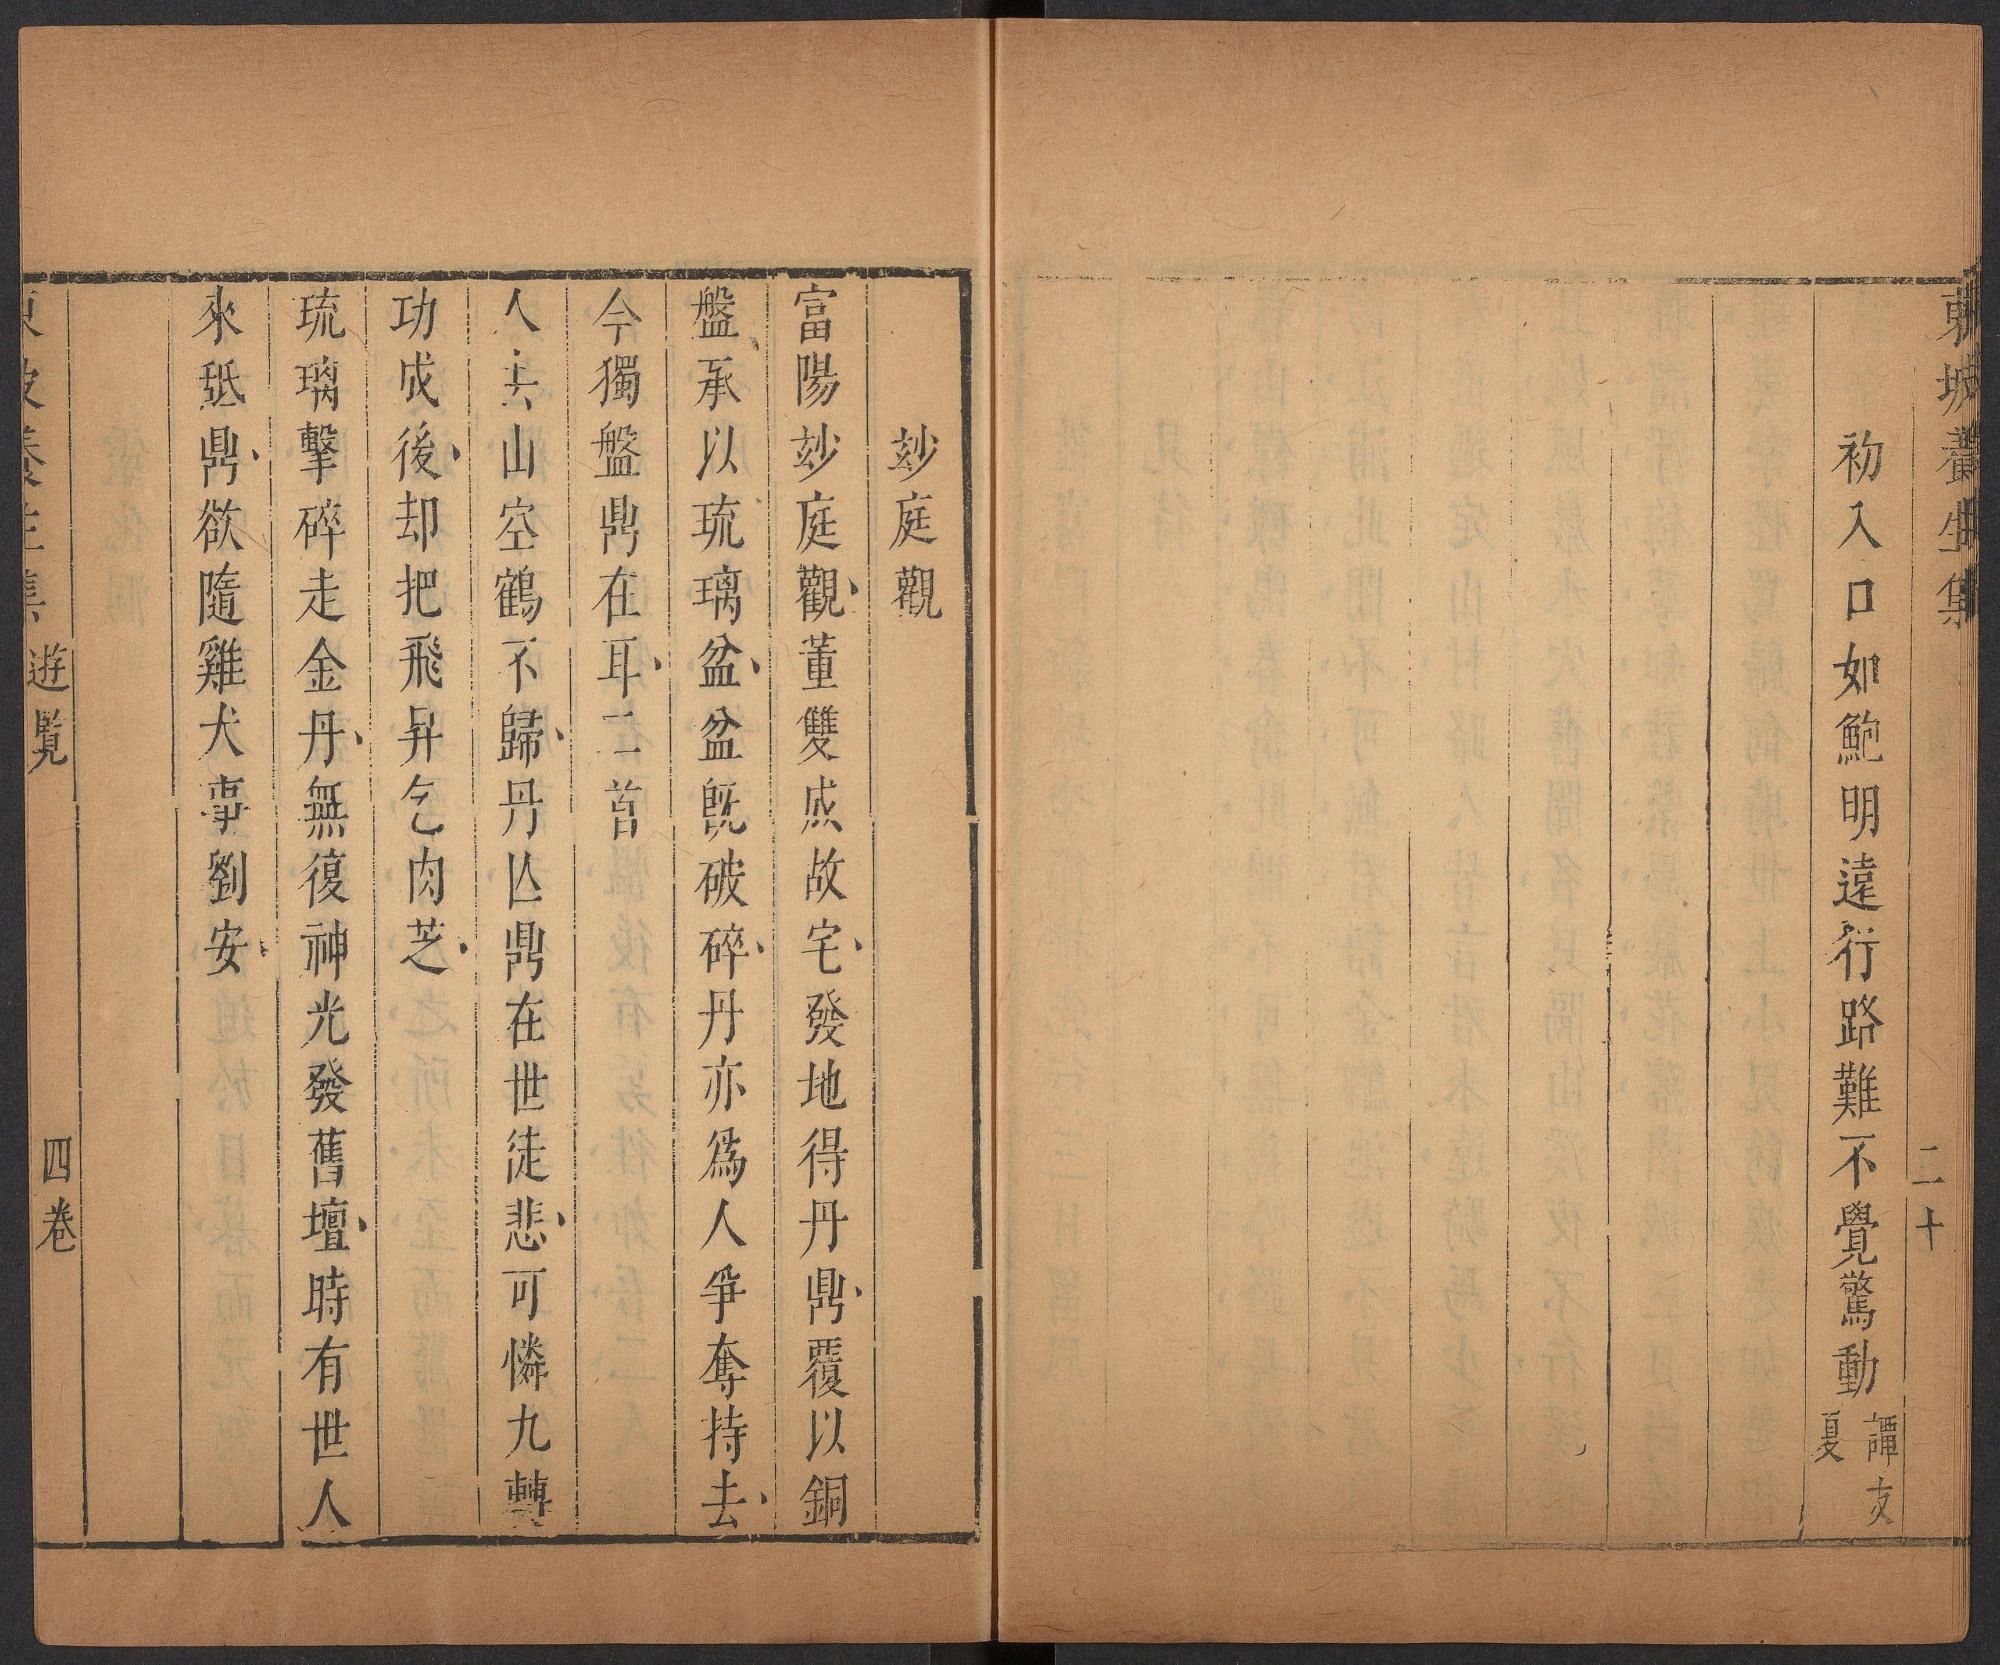 東坡養生集
二十
初入口如鮑明遠行路難不覺驚動譚友夏
玅庭觀
富陽玅庭觀董雙成故宅發地得丹鼎覆以銅
盤承以琉璃盆盆旣破碎丹亦爲人爭奪持去
今獨盤鼎在耳二首
人去山空鶴不歸丹亾鼎在世徒悲可憐九轉
功成後却把飛昇乞肉芝
琉璃擊碎走金丹無復神光發舊壇時有世人
來舐鼎欲隨雞犬事劉安
東坡養生集 遊覽 四卷